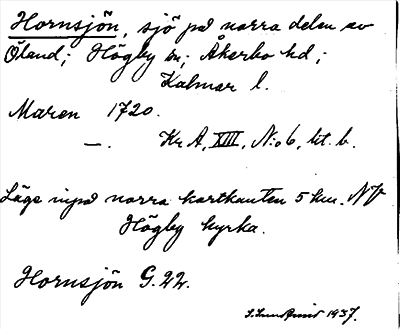 Hornsjön, sjö på norra delen av
Öland; Högby sn; Åkerbo hd;
Kalmar l.
Maren 1720.
—. Kr A, XIII, N:o 6, lit. b.
Läge inpå norra kartkanten 5 km. NV
Högby kyrka.
Hornsjön G. 22.
1937.